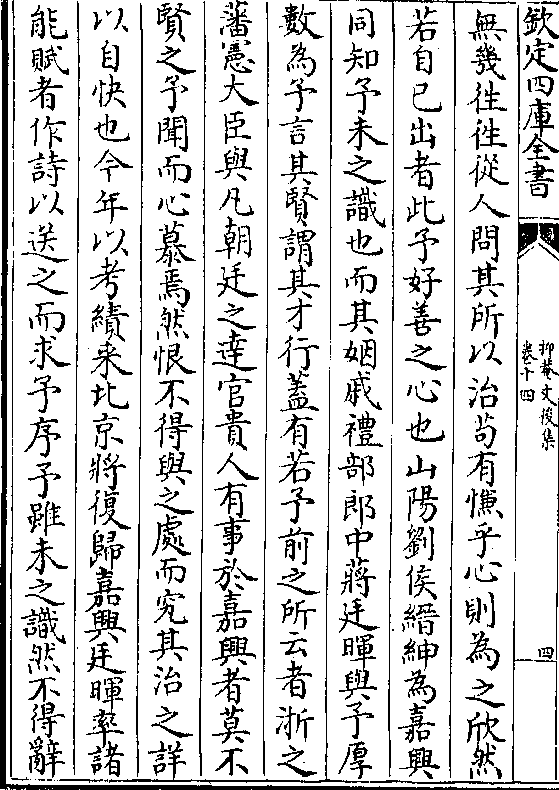 欽定四庫全書
抑菴文後集
卷十四
四
無幾徃徃從人問其所以治茍有慊乎心則為之欣然
若自已出者此予好善之心也山陽劉侯縉紳為嘉興
同知予未之識也而其姻戚禮部郎中蔣廷暉與予厚
數為予言其賢謂其才行蓋有若予前之所云者浙之
藩憲大臣與凡朝廷之達官貴人有事於嘉興者莫不
賢之予聞而心慕焉然恨不得與之處而究其治之詳
以自快也今年以考績來北京將復歸嘉興廷暉率諸
能賦者作詩以送之而求予序予雖未之識然不得辭